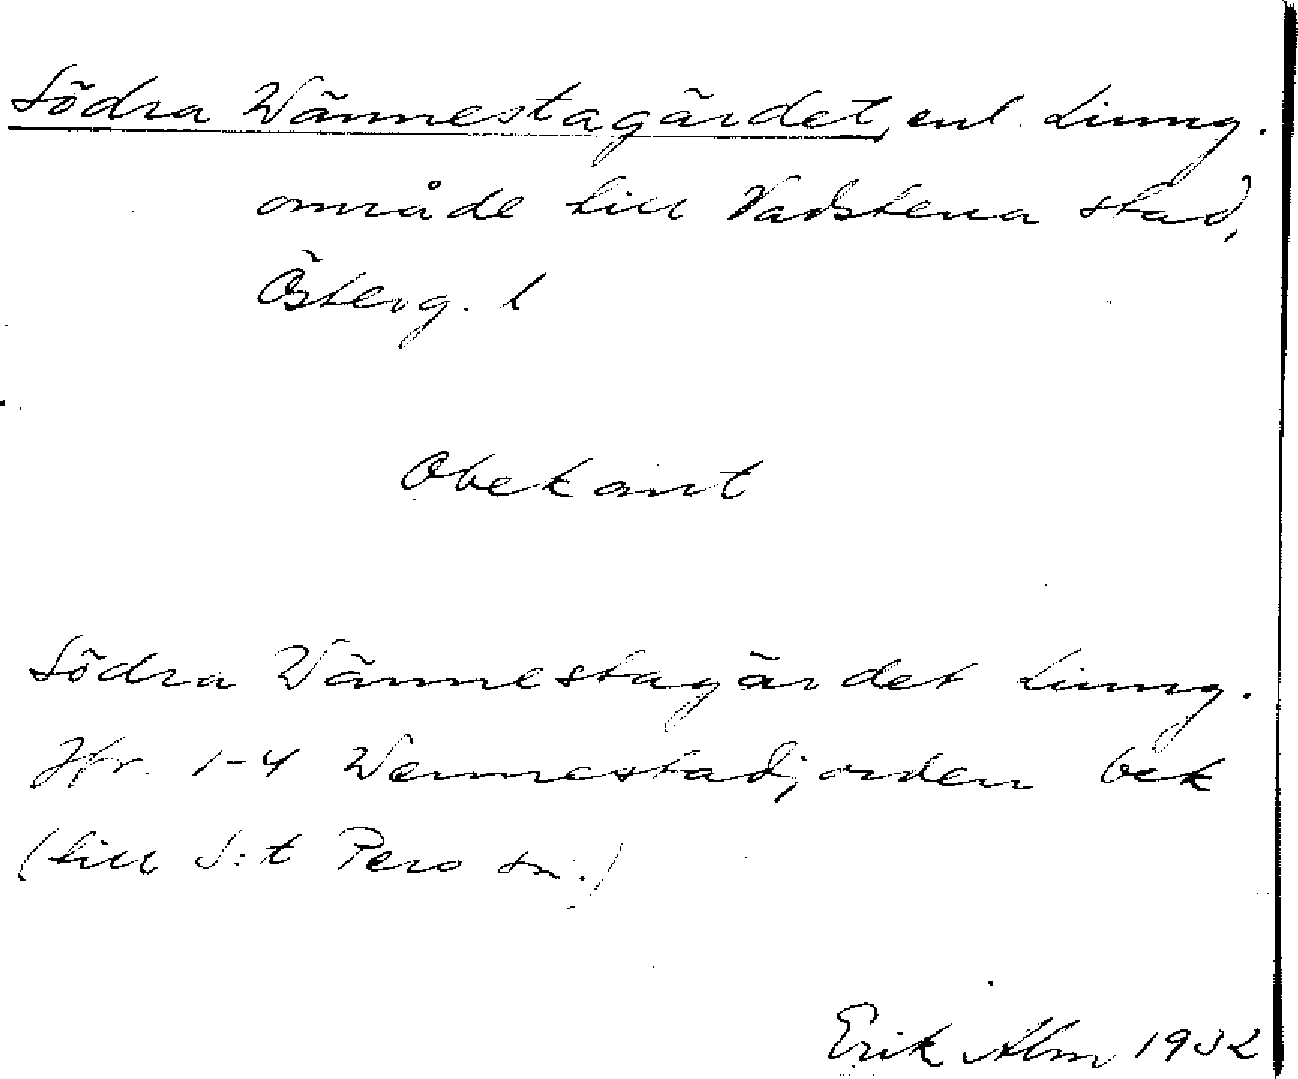 Södra Wännestagärdet, enl. Ljung.
område till Vadstena stad,
Österg. l
Obekant
Södra Wännestagärdet Ljung.
Jfr. 1-4 Wennestadjorden bek
(till S:t Pers sn.)
Erik Alm 1932